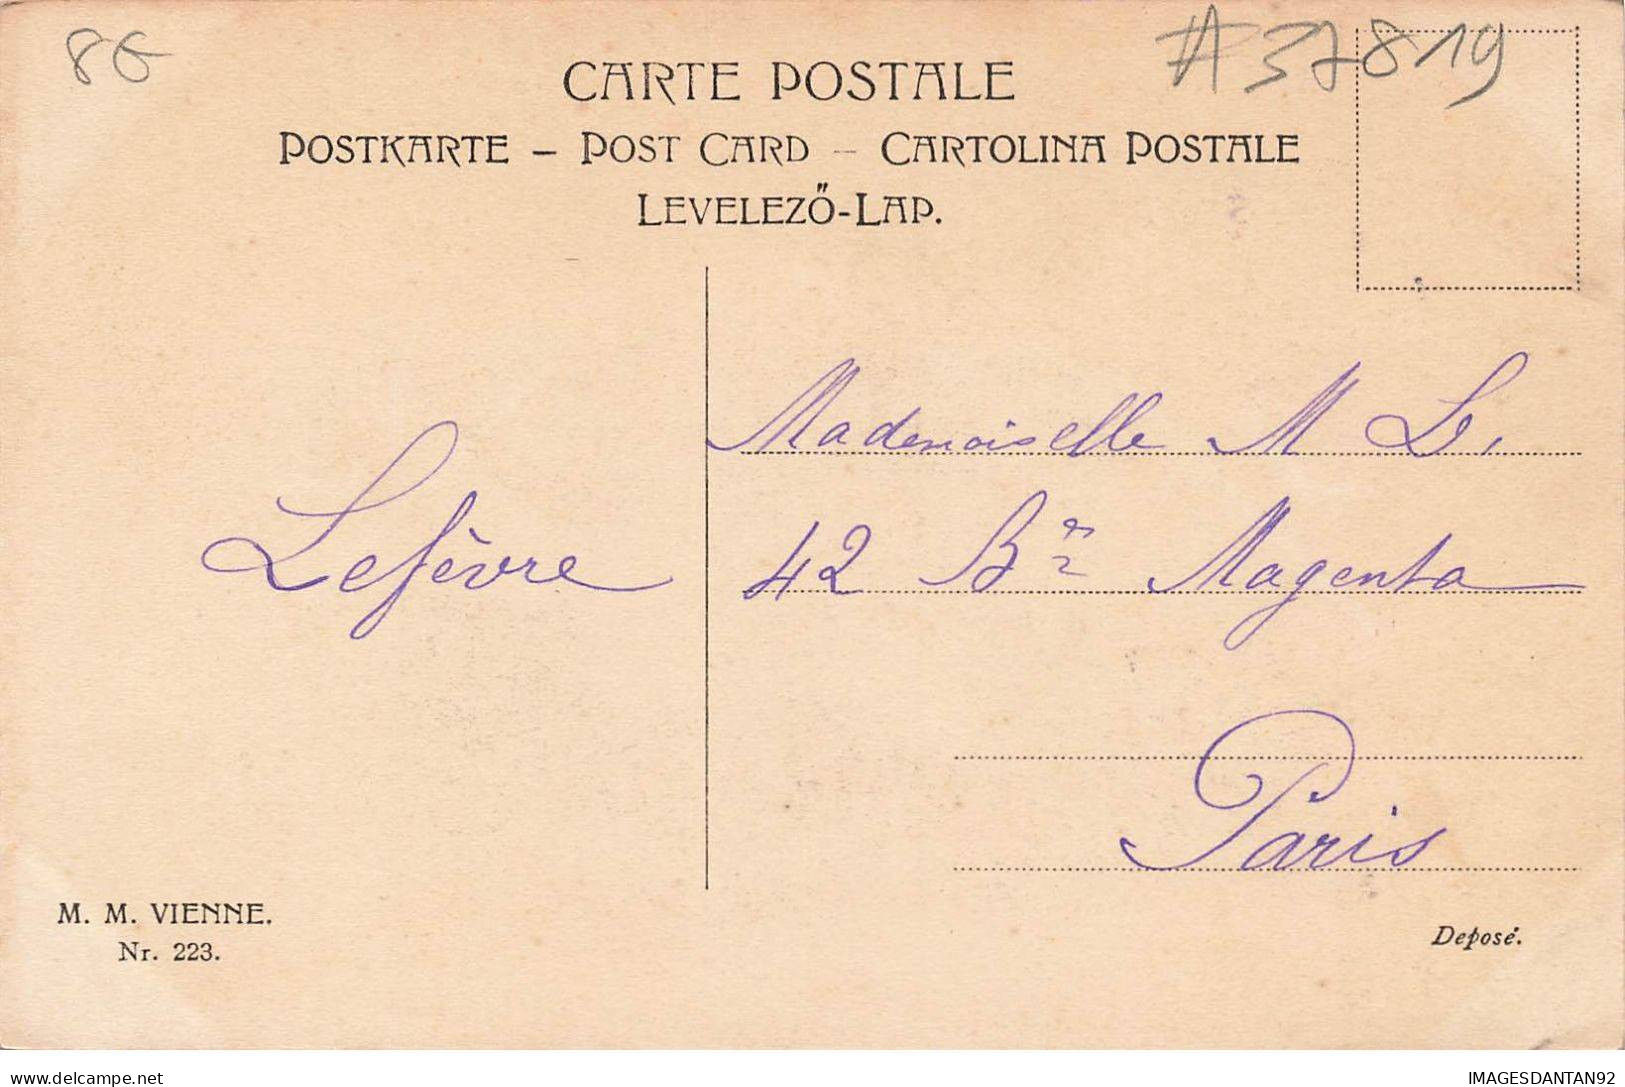 8€
#37819
CARTE POSTALE
POSTKARTE – POST CARD – CARTOLINA POSTALE
LEVELEZŐ-LAP.
Mademoiselle M L.
42 Bd Magenta
Paris
Lefèvre
M. M. VIENNE.
Nr. 223.
Deposé.
delcampe.net
IMAGESDANTAN92